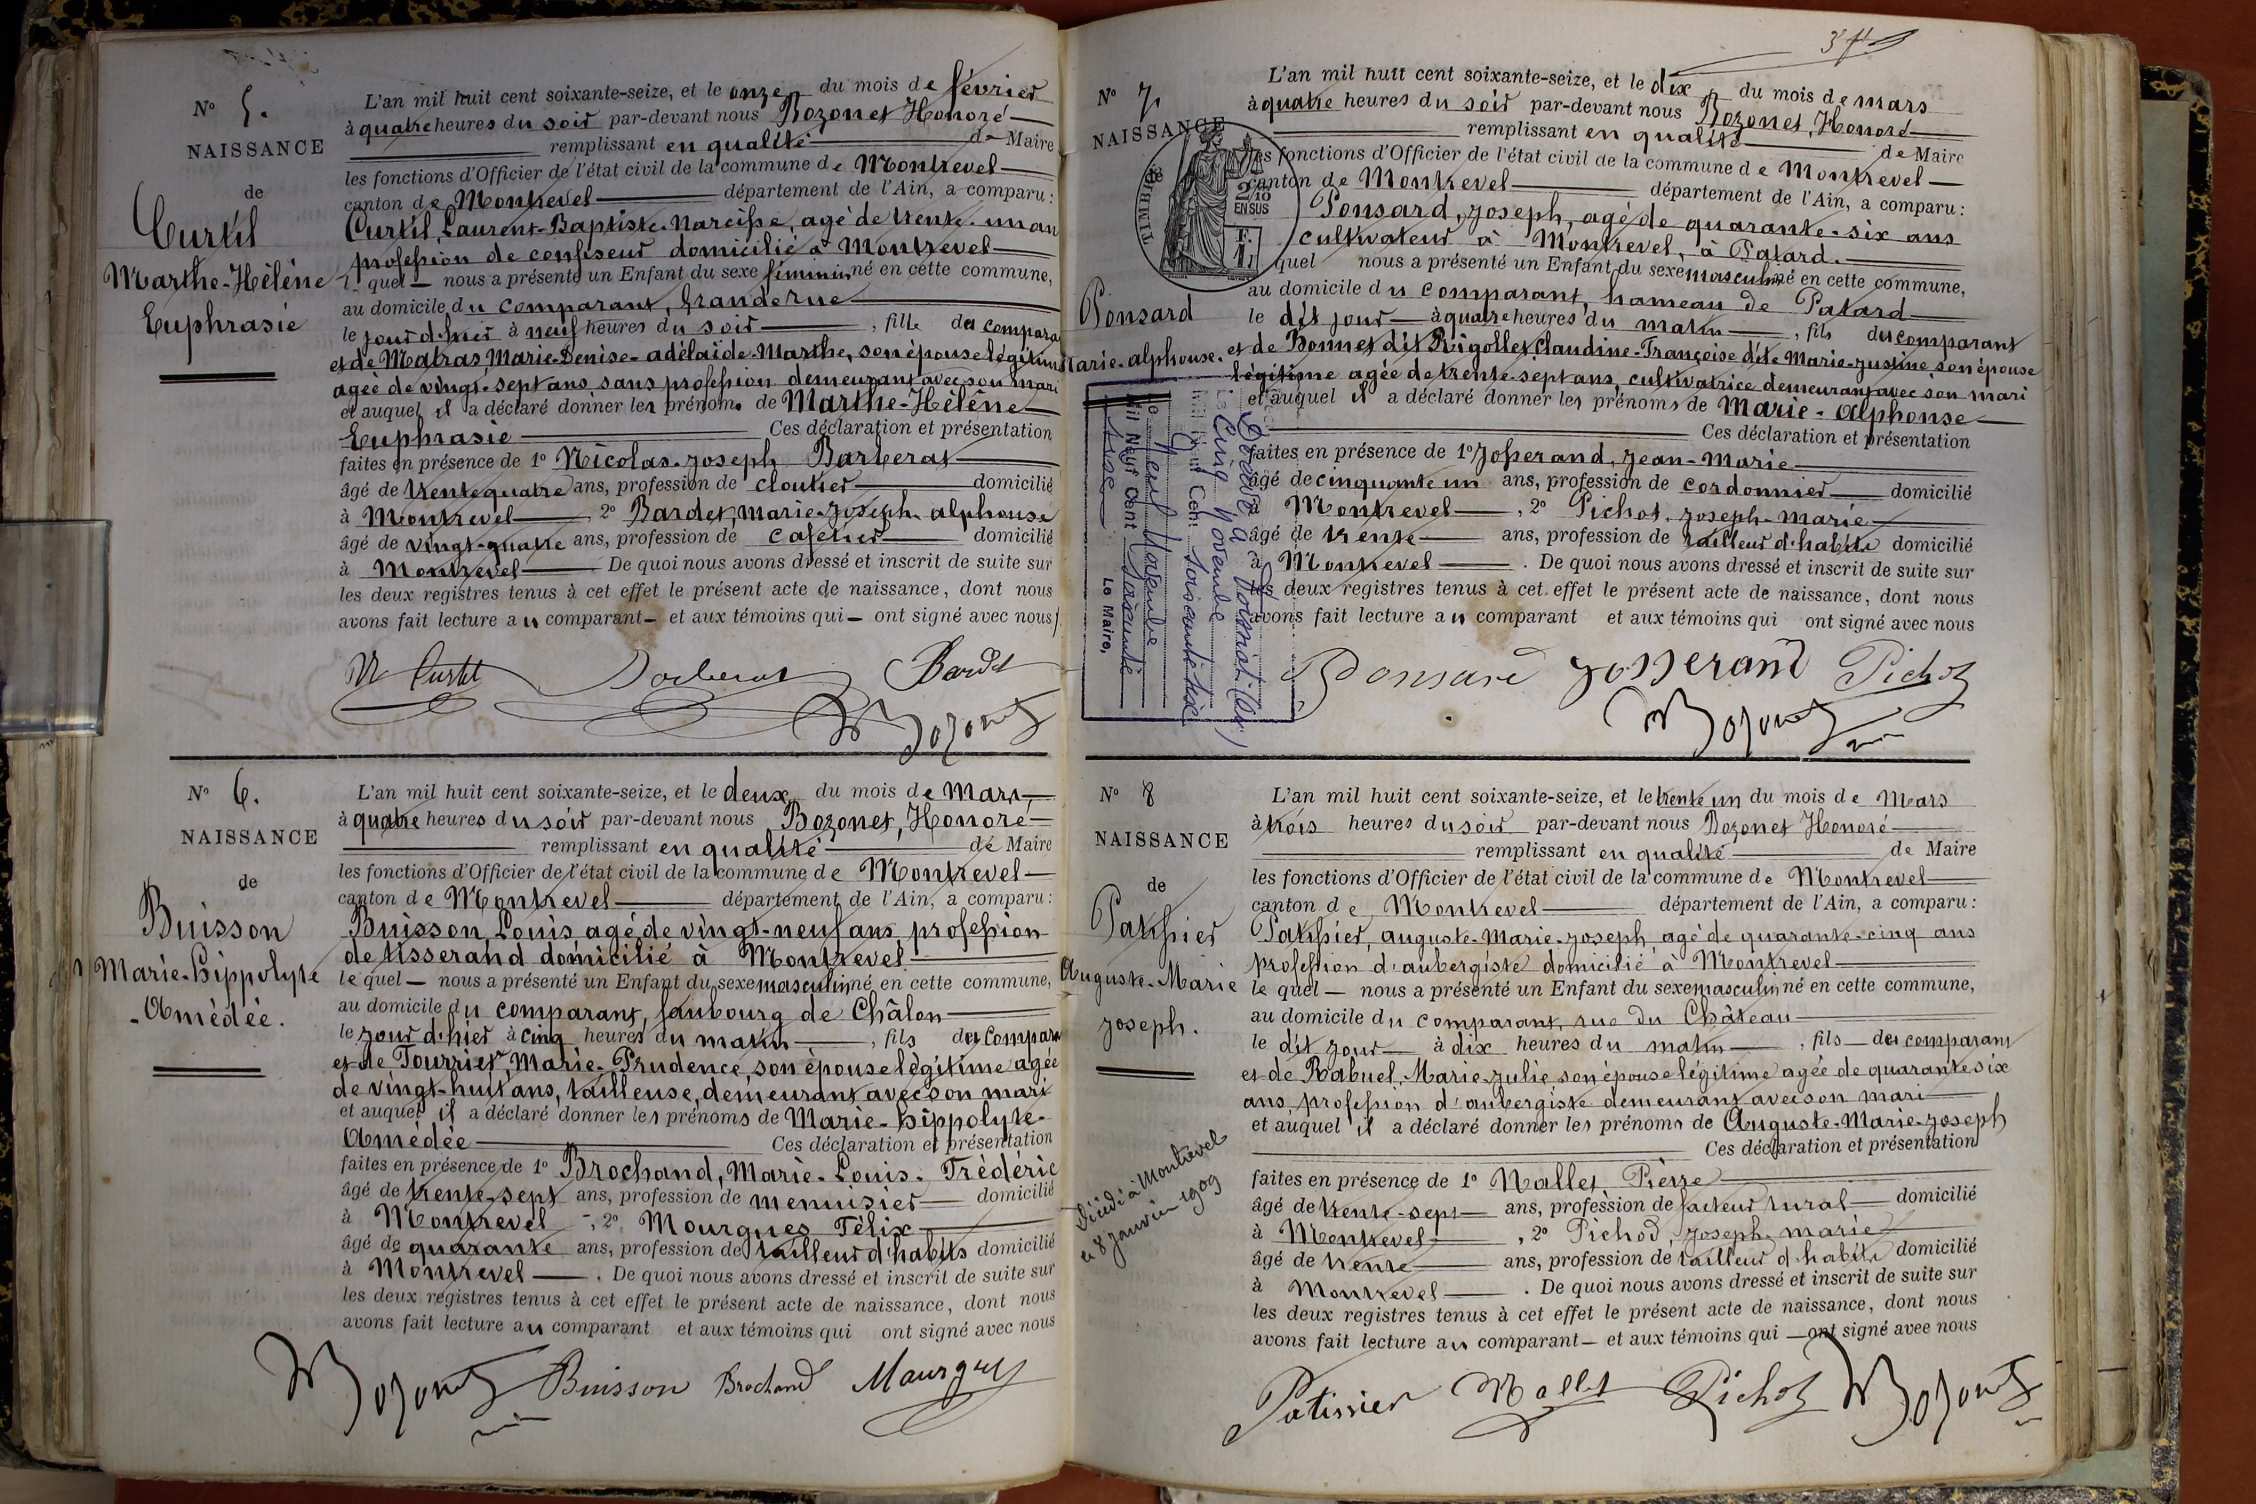 N° 5.
NAISSANCE
de
Curtil
Marthe-Hélène
Euphrasie
L'an mil huit cent soixante-seize, et le onze du mois de février
à quatre heures du soir par-devant nous Bozonet Honoré
remplissant en qualité de Maire
les fonctions d'Officier de l'état civil de la commune de Montrevel
canton de Montrevel département de l'Ain, a comparu :
Curtil, Laurent-Baptiste-Narcisse, agé de trente-un an
profession de confiseur domicilié à Montrevel
le quel nous a présenté un Enfant du sexe féminin né en cette commune,
au domicile du comparant, grande rue
le jour d'hier à neuf heures du soir, fille du compara
et de Matras, Marie-Denise-adélaïde-Marthe, son épouse légitime
agée de vingt-sept ans sans profession demeurant avec son mari
et auquel il a déclaré donner les prénoms de Marthe-Hélène
Euphrasie Ces déclaration et présentation
faites en présence de 1° Nicolas-Joseph Barberat
âgé de trente quatre ans, profession de cloutier domicilié
à Montrevel, 2° Bardet, marie-Joseph-alphonse
âgé de vingt-quatre ans, profession de cafetier domicilié
à Montrevel De quoi nous avons dressé et inscrit de suite sur
les deux registres tenus à cet effet le présent acte de naissance, dont nous
avons fait lecture au comparant et aux témoins qui ont signé avec nous
Curtil Barberat Bardet
Bozonet
N° 6.
NAISSANCE
de
Buisson
Marie-hippolyte
-Amédée.
L'an mil huit cent soixante-seize, et le deux du mois de Mars,
à quatre heures du soir par-devant nous Bozonet, Honoré
remplissant en qualité de Maire
les fonctions d'Officier de l'état civil de la commune de Montrevel
canton de Montrevel département de l'Ain, a comparu :
Buisson, Louis agé de vingt-neuf ans profession
de tisserand domicilié à Montrevel
le quel nous a présenté un Enfant du sexe masculin né en cette commune,
au domicile du comparant, faubourg de Châlon
le jour d'hier à cinq heures du matin, fils du compara
et de Tourrier, Marie-Prudence, son épouse légitime agée
de vingt-huit ans, tailleuse, demeurant avec son mari
et auquel il a déclaré donner les prénoms de Marie-hippolyte-
Amédée Ces déclaration et présentation
faites en présence de 1° Brochand, Marie-Louis-Frédéric
âgé de trente-sept ans, profession de menuisier domicilié
à Montrevel, 2° Mourgues Félix
âgé de quarante ans, profession de tailleur d'habits domicilié
à Montrevel. De quoi nous avons dressé et inscrit de suite sur
les deux registres tenus à cet effet le présent acte de naissance, dont nous
avons fait lecture au comparant et aux témoins qui ont signé avec nous
Bozonet Buisson Brochand Mourgues
N° 7
NAISSANCE
TIMBRE
2/10
EN SUS
Ponsard
Marie-alphonse.
L'an mil huit cent soixante-seize, et le dix du mois de mars
à quatre heures du soir par-devant nous Bozonet, Honoré
remplissant en qualité de Maire
les fonctions d'Officier de l'état civil de la commune de Montrevel
canton de Montrevel département de l'Ain, a comparu :
Ponsard, Joseph, agé de quarante-six ans
cultivateur à Montrevel, à Patard.
quel nous a présenté un Enfant du sexe masculin né en cette commune,
au domicile du comparant, hameau de Patard
le dit jour à quatre heures du matin, fils du comparant
et de Bonnet dit Rigollet Claudine-Françoise dite Marie-Justine son épouse
légitime agée de trente-sept ans, cultivatrice demeurant avec son mari
et auquel il a déclaré donner les prénoms de Marie-Alphonse
Ces déclaration et présentation
faites en présence de 1° Josserand, Jean-Marie
âgé de cinquante un ans, profession de cordonnier domicilié
Montrevel, 2° Pichot, Joseph-Marie
âgé de trente ans, profession de tailleur d'habits domicilié
à Montrevel. De quoi nous avons dressé et inscrit de suite sur
deux registres tenus à cet effet le présent acte de naissance, dont nous
avons fait lecture au comparant et aux témoins qui ont signé avec nous
Décédé à
Cinq novembre
Mil Neuf Cent soixante six
Le neuf Novembre
Mil Neuf Cent soixante
six
Le Maire,
Ponsard Josserand Pichot
Bozonet
N° 8
NAISSANCE
de
Patissier
Auguste-Marie
Joseph.
Décédé à Montrevel
le 8 janvier 1909
L'an mil huit cent soixante-seize, et le trente un du mois de Mars
à trois heures du soir par-devant nous Bozonet Honoré
remplissant en qualité de Maire
les fonctions d'Officier de l'état civil de la commune de Montrevel
canton de Montrevel département de l'Ain, a comparu :
Patissier, auguste-Marie-Joseph, agé de quarante-cinq ans
profession d'aubergiste domicilié à Montrevel
le quel nous a présenté un Enfant du sexe masculin né en cette commune,
au domicile du comparant, rue du Château
le dit jour à dix heures du matin, fils du comparant
et de Rabuel, Marie-Julie, son épouse légitime agée de quarante six
ans, profession d'aubergiste demeurant avec son mari
et auquel il a déclaré donner les prénoms de Auguste-Marie-Joseph
Ces déclaration et présentation
faites en présence de 1° Mallet Pierre
âgé de trente-sept ans, profession de facteur rural domicilié
à Montrevel, 2° Pichod, Joseph-marie
âgé de trente ans, profession de tailleur d'habits domicilié
à Montrevel. De quoi nous avons dressé et inscrit de suite sur
les deux registres tenus à cet effet le présent acte de naissance, dont nous
avons fait lecture au comparant et aux témoins qui ont signé avec nous
Patissier Mallet Pichot Bozonet